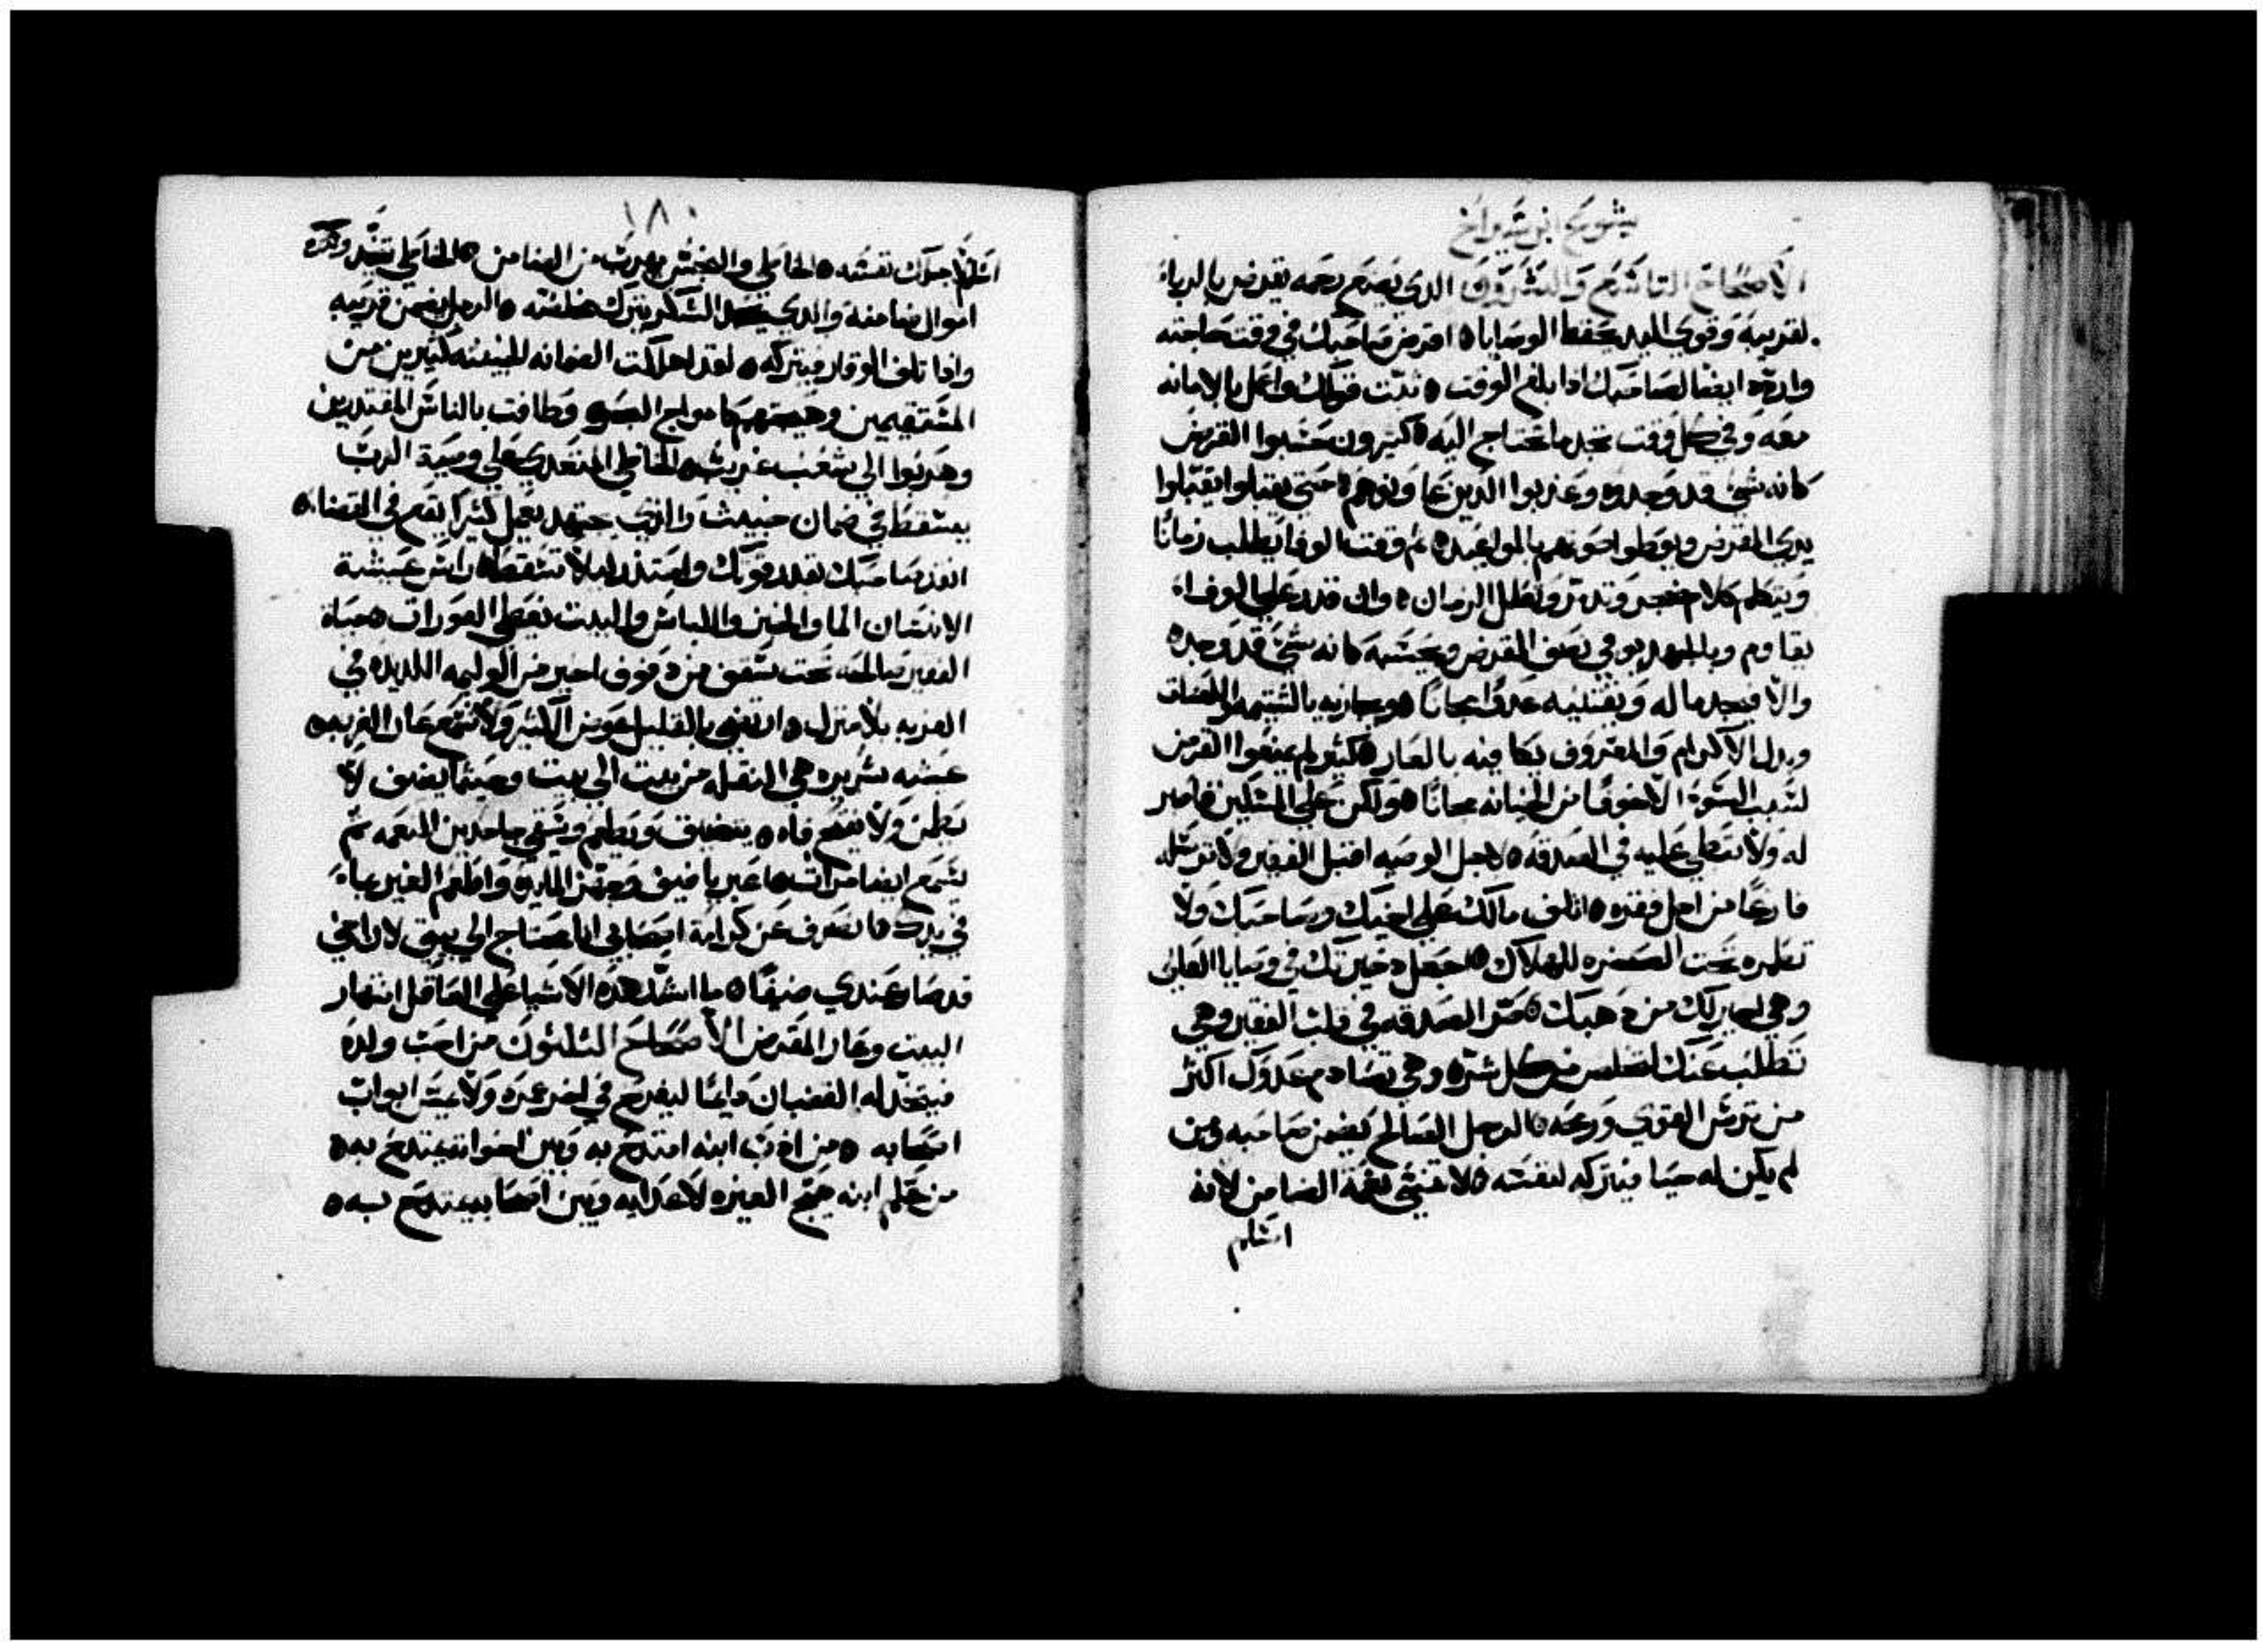 يشوع ابن شيراخ
الأصحاح التاسع والعشرون الذي يصنع رحمه يقرض بالرباء
لقريبه وقوي اليد يحفظ الوصايا ه اقرض صاحبك في وقت حاجته
واردده ايضا لصاحبك اذا بلغ الوقت ه ثبت قولك واعمل بالامانه
معه وفي كل وقت تجد ما تحتاج اليه ه كثيرون حسبوا القرض
كانه شي قد وجدوه وعذبوا الذين عاونوهم ه حتى يقبلوا يقبلوا
يدي المقرض ويوطوا اصوتهم بالمواعيد ه ثم وقت الوفا يطلب زمانا
ويتكلم كلام ضجر وتدمر ويطل الزمان ه وان قدر على الوفاء
يقاوم وبالجهد يوفي نصف القرض ويحسبه كانه شي قد وجده
والا فيجد ماله ويقتنيه عدوا مجانا ه ويجازيه بالشتيمه واللعنات
وبدل الاكرام والمعروف يكافيه بالعار ه كثير لم يمنعوا القرض
لسبب السوء الا خوفا من الخيانه مجانا ه ولكن على المسكين فاصبر
له ولا تبطي عليه في الصدقه ه لاجل الوصيه اقبل الفقير ولا ترسله
فارغا من اجل فقره ه اتلف مالك على اخيك وصاحبك ولا
تطمره تحت الصخره للهلاك ه اجعل دخيرتك في وصايا العلي
وهي اخير لك من دهبك ه صر الصدقه في قلب الفقير وهي
تطلب عنك لتخلص من كل شر ه وهي تصادم عدوك اكثر
من ترس القوي ورمحه ه الرجل الصالح يضمن صاحبه ومن
لم يكن له حيا فيتركه لنفسه ه لا تنسى نعمة الضامن لانه
اسلم
١٨٠
اسلم لاجلك نفسه ه الخاطي والنجس يهرب من الضامن ه الخاطي
اموال ضامنه والذي الشكر يترك مخلصه ه الرجل يضمن قريبه
واذا تلف الوقار فيتركه ه لقد اهلكت الضمانه الخبيثه كثيرين من
المستقيمين وهيجتهم كامواج البحر وطافت بالناس المقتدرين
وهربوا الى شعب غريب ه الخاطي المتعدي على وصية الرب
يسقط في ضمان خبيث والذي يجتهد يعمل كثيرا يقع في القضاء ه
انقذ صاحبك بقدر قوتك واحتذر ليلا تسقط ه راس عيشة
الانسان الما والخبز واللباس والبيت يغطي العورات ه حياة
الفقير مالحه تحت سقف من دفوف اخير من الوليمه اللذيذه في
الغربه بلا منزل ه ارتضي بالقليل عوض الكثير ولا تسمع عار الغربه ه
عيشه شريره هي التنقل من بيت الى بيت وحيثما يضيف لا
يطمن ولا يفتح فاه ه يتضيف ويطعم ويسقي جاحدين النعمه ثم
يسمع ايضا مرات ه اعبر يا ضيف وجهز المايده واطعم الغير بما
في يدك ه انصرف عن كرامة اصحابي انا محتاج الى بيتي لان اخي
قد صار عندي ضيفا ه ما اشد هذه الاشيا على العاقل انتهار
البيت وعار المقرض الأصحاح الثلثون من احب ولده
فيتخد له القضبان دايما ليفرح في اخر عمره ولا يجس ابواب
اصحابه ه من ادب ابنه امتدح به وبين اخوانه يمتدح به ه
من علم ابنه هيج الغيره لاعدايه وبين اصحابه يمتدح به ه